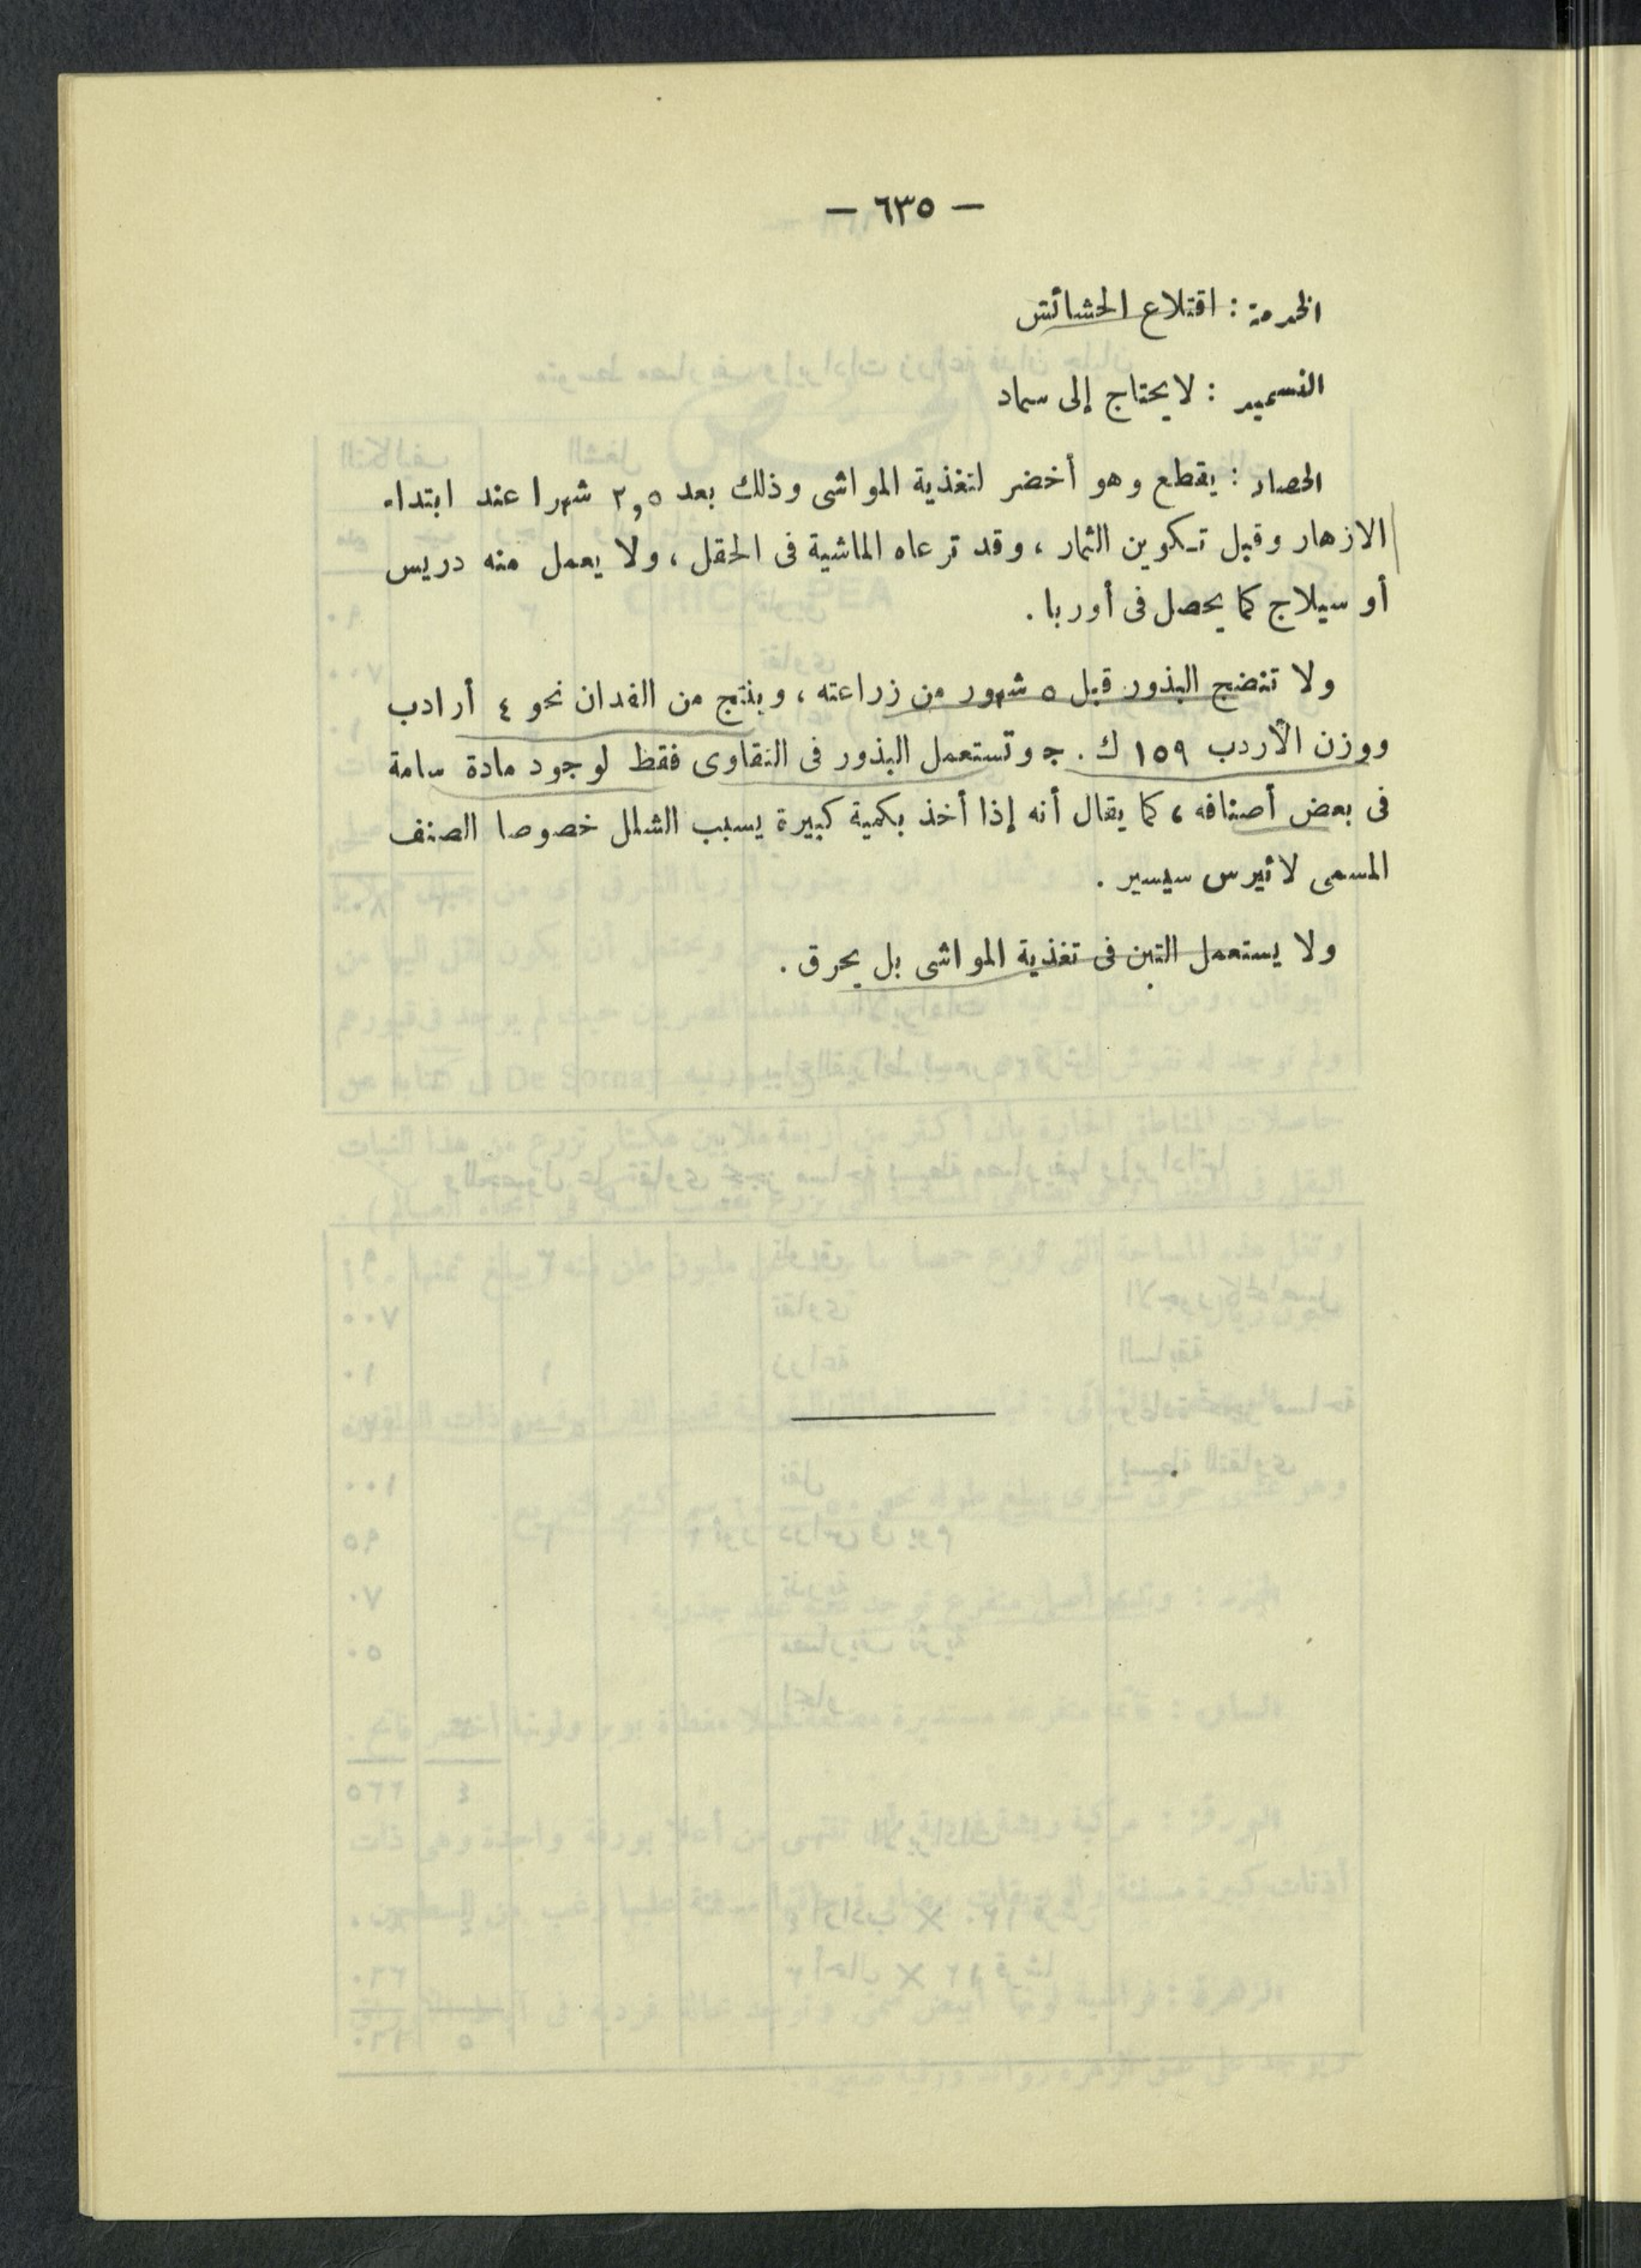 — ٦٣٥ —
الخدمة : اقتلاع الحشائش
التسميد : لا يحتاج إلى سماد
الحصاد : يقطع وهو أخضر لتغذية المواشى وذلك بعد ٢,٥ شهرا عند ابتداء
الازهار وقبل تكوين الثمار ، وقد ترعاه الماشية فى الحقل ، ولا يعمل منه دريس
أو سيلاج كما يحصل فى أوربا .
ولا تنضج البذور قبل ٥ شهور من زراعته ، وينتج من الفدان نحو ٤ أرادب
ووزن الأردب ١٥٩ ك . ج وتستعمل البذور فى التقاوى فقط لوجود مادة سامة
فى بعض أصنافه ، كما يقال أنه إذا أخذ بكمية كبيرة يسبب الشلل خصوصا الصنف
المسمى لاثيرس سيسير .
ولا يستعمل التبن فى تغذية المواشى بل يحرق .